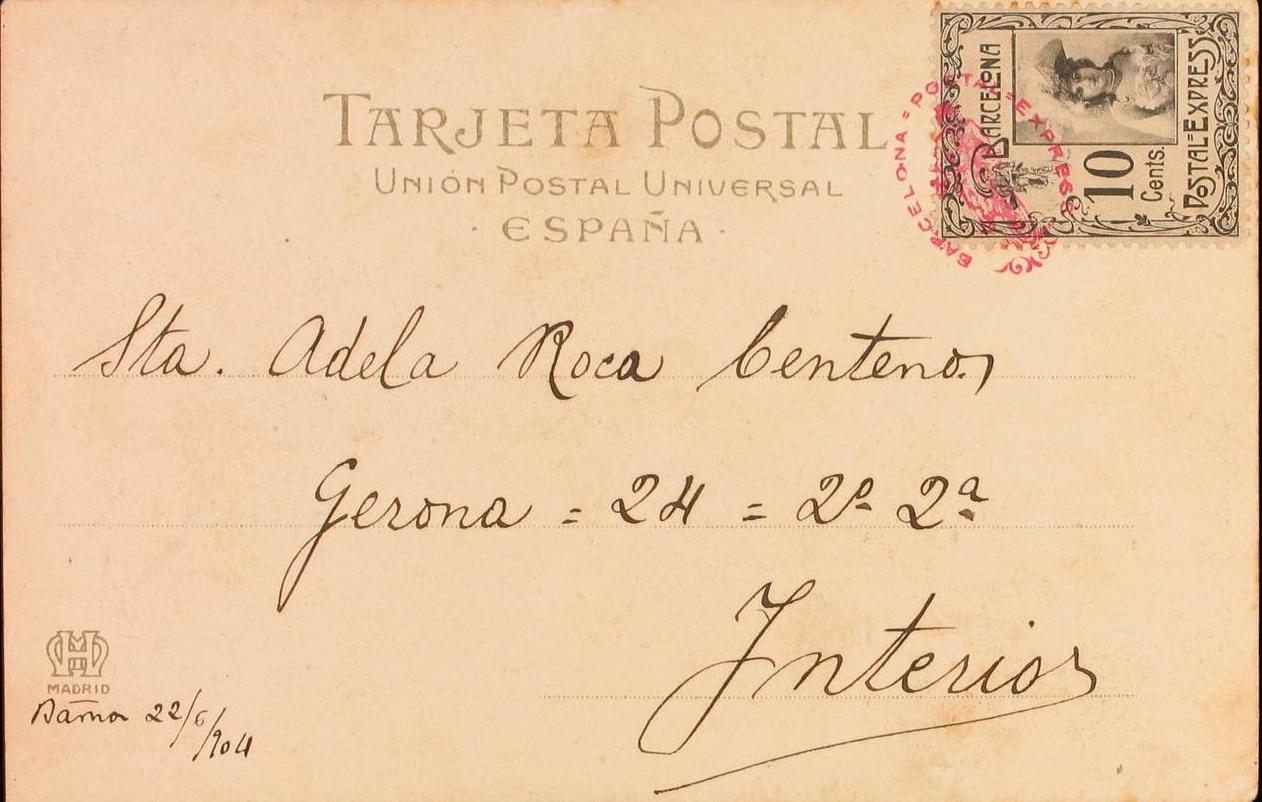 TARJETA POSTAL
UNIÓN POSTAL UNIVERSAL
· ESPAÑA ·
BARCELONA
10
Cents.
POSTAL=EXPRESS
BARCELONA = POSTAL = EXPRESS
Sta. Adela Roca Centeno,
Gerona = 24 = 2º 2ª
Interior
MADRID
Barna 22/6/904